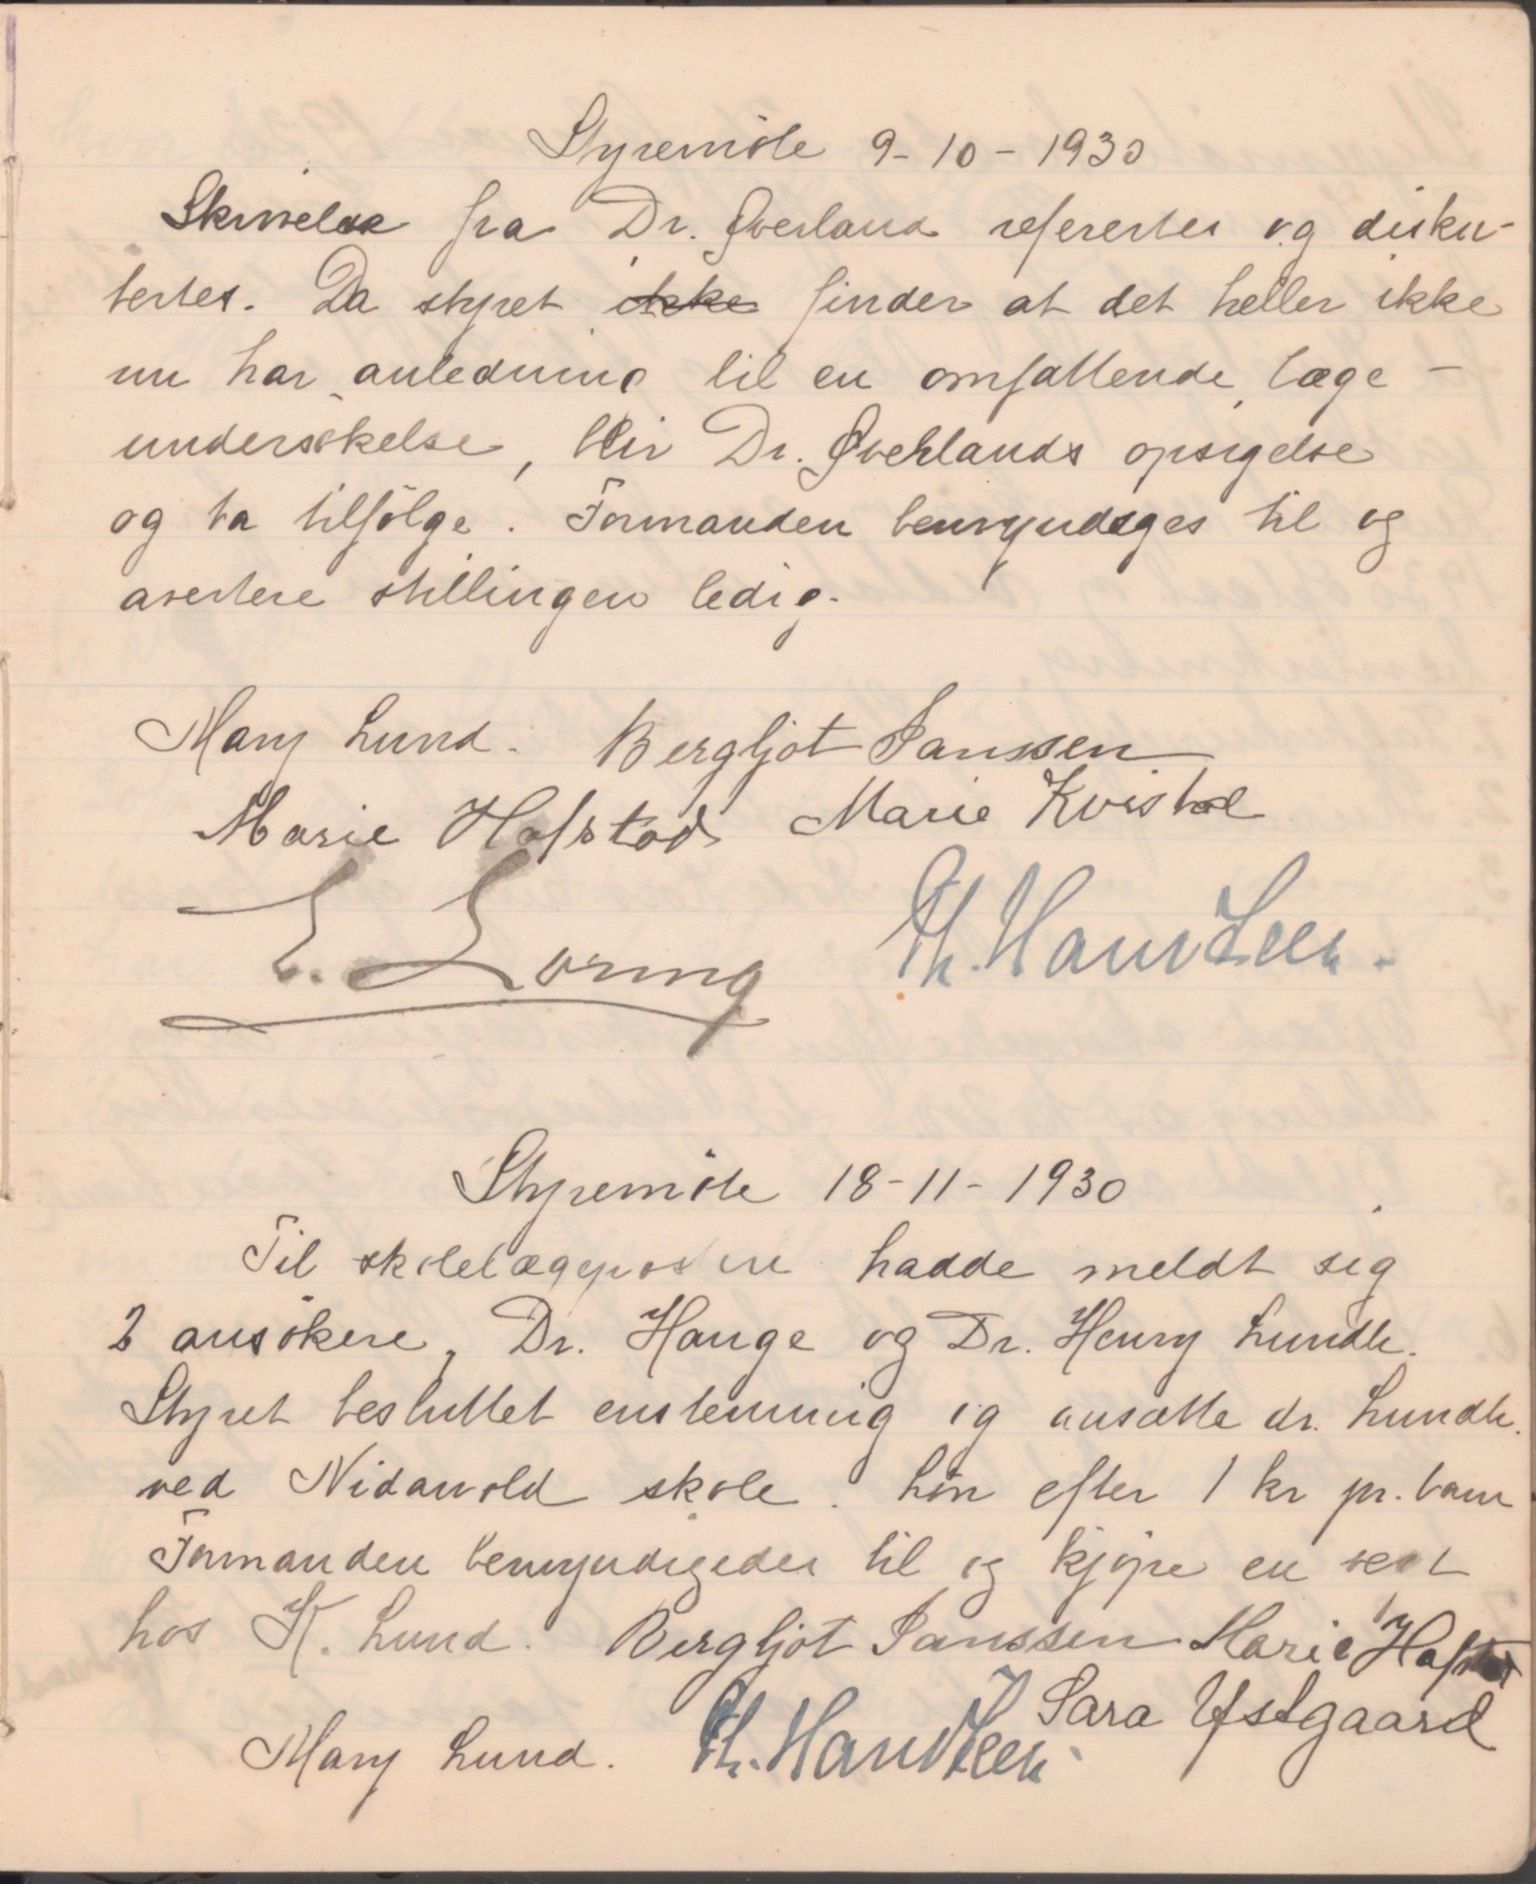 Styremöte 9-10-1930
Skrivelse fra Dr. Øverland refertes og disku-
tertes. Da styret ikke finder at det heller ikke
nu har anledning til en omfattende læge-
undersökelse, blir Dr. Øverlands opsigelse
og ta tilfölge. Formanden bemyndiges til og
avertere stillingen ledig.
Mary Lund. Bergljot Janssen
Marie Hofstad Marie Kvistad
E. Loring Th. Hansteen.
Styremöte 18-11-1930
Til skolelægeposten hadde meldt sig
2 ansökere, Dr. Hauge og Dr. Henry Lundh.
Styret besluttet enstemmig og ansætte dr. Lundh.
ved Nidarvold skole. Lön efter 1 kr pr. barn
Formanden bemyndigedes til og kjöpe en vegt
hos K. Lund. Bergljot Janssen Marie Hofstad
Sara Ystgaard
Mary Lund. Th. Hansteen.